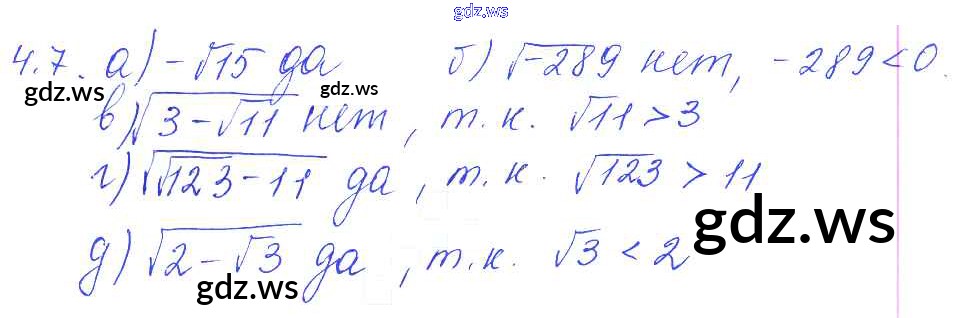 gdz.ws
4.7. а) -√15 да б) √-289 нет, -289 < 0.
gdz.ws
в) √(3-√11) нет, т.к. √11 > 3
г) √(√123-11) да, т.к. √123 > 11
gdz.ws
д) √(2-√3) да, т.к. √3 < 2
gdz.ws